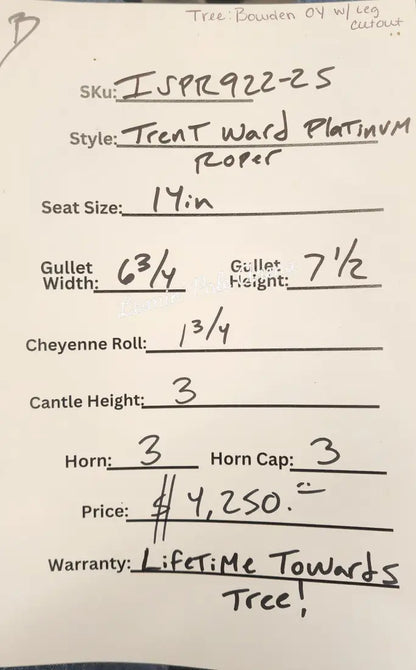 B
Tree: Bowden OY w/ Leg
cutout
SKu: ISPR922-25
Style: Trent Ward Platinum
Roper
Seat Size: 14in
Gullet Width: 6 3/4 Gullet Height: 7 1/2
Cheyenne Roll: 1 3/4
Cantle Height: 3
Horn: 3 Horn Cap: 3
Price: $ 4,250.=
Warranty: LifeTiMe Towards
Tree!